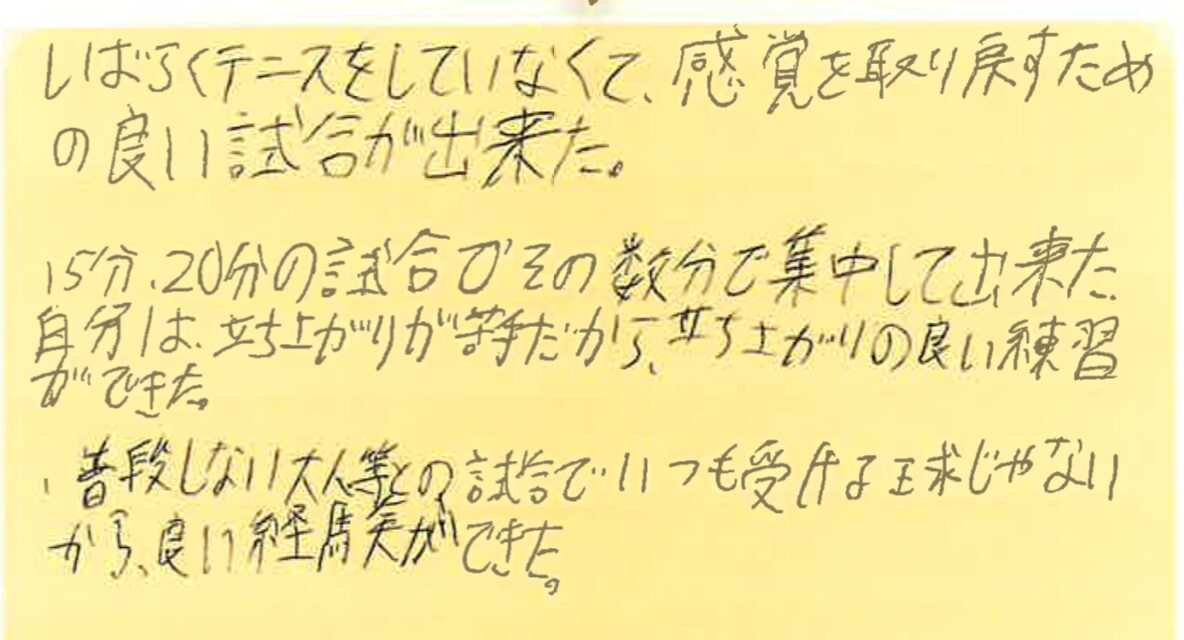 しばらくテニスをしていなくて、感覚を取り戻すため
の良い試合が出来た。
15分、20分の試合でその数分で集中して出来た
自分は、立ち上がりが苦手だから、立ち上がりの良い練習
ができた。
・普段しない大人等との、試合でいつも受ける球じゃない
から、良い経験ができた。